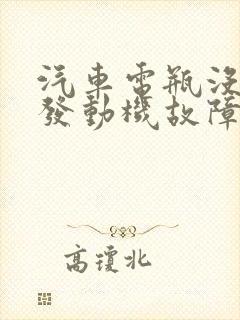 汽車電瓶沒
發動機故障
高瓊北